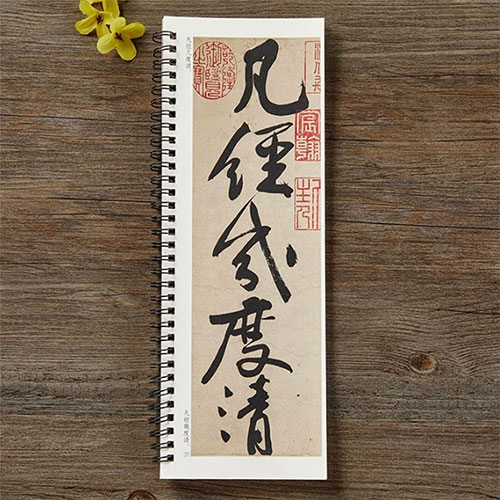 凡經幾度清
凡经几度清
凡經幾度清